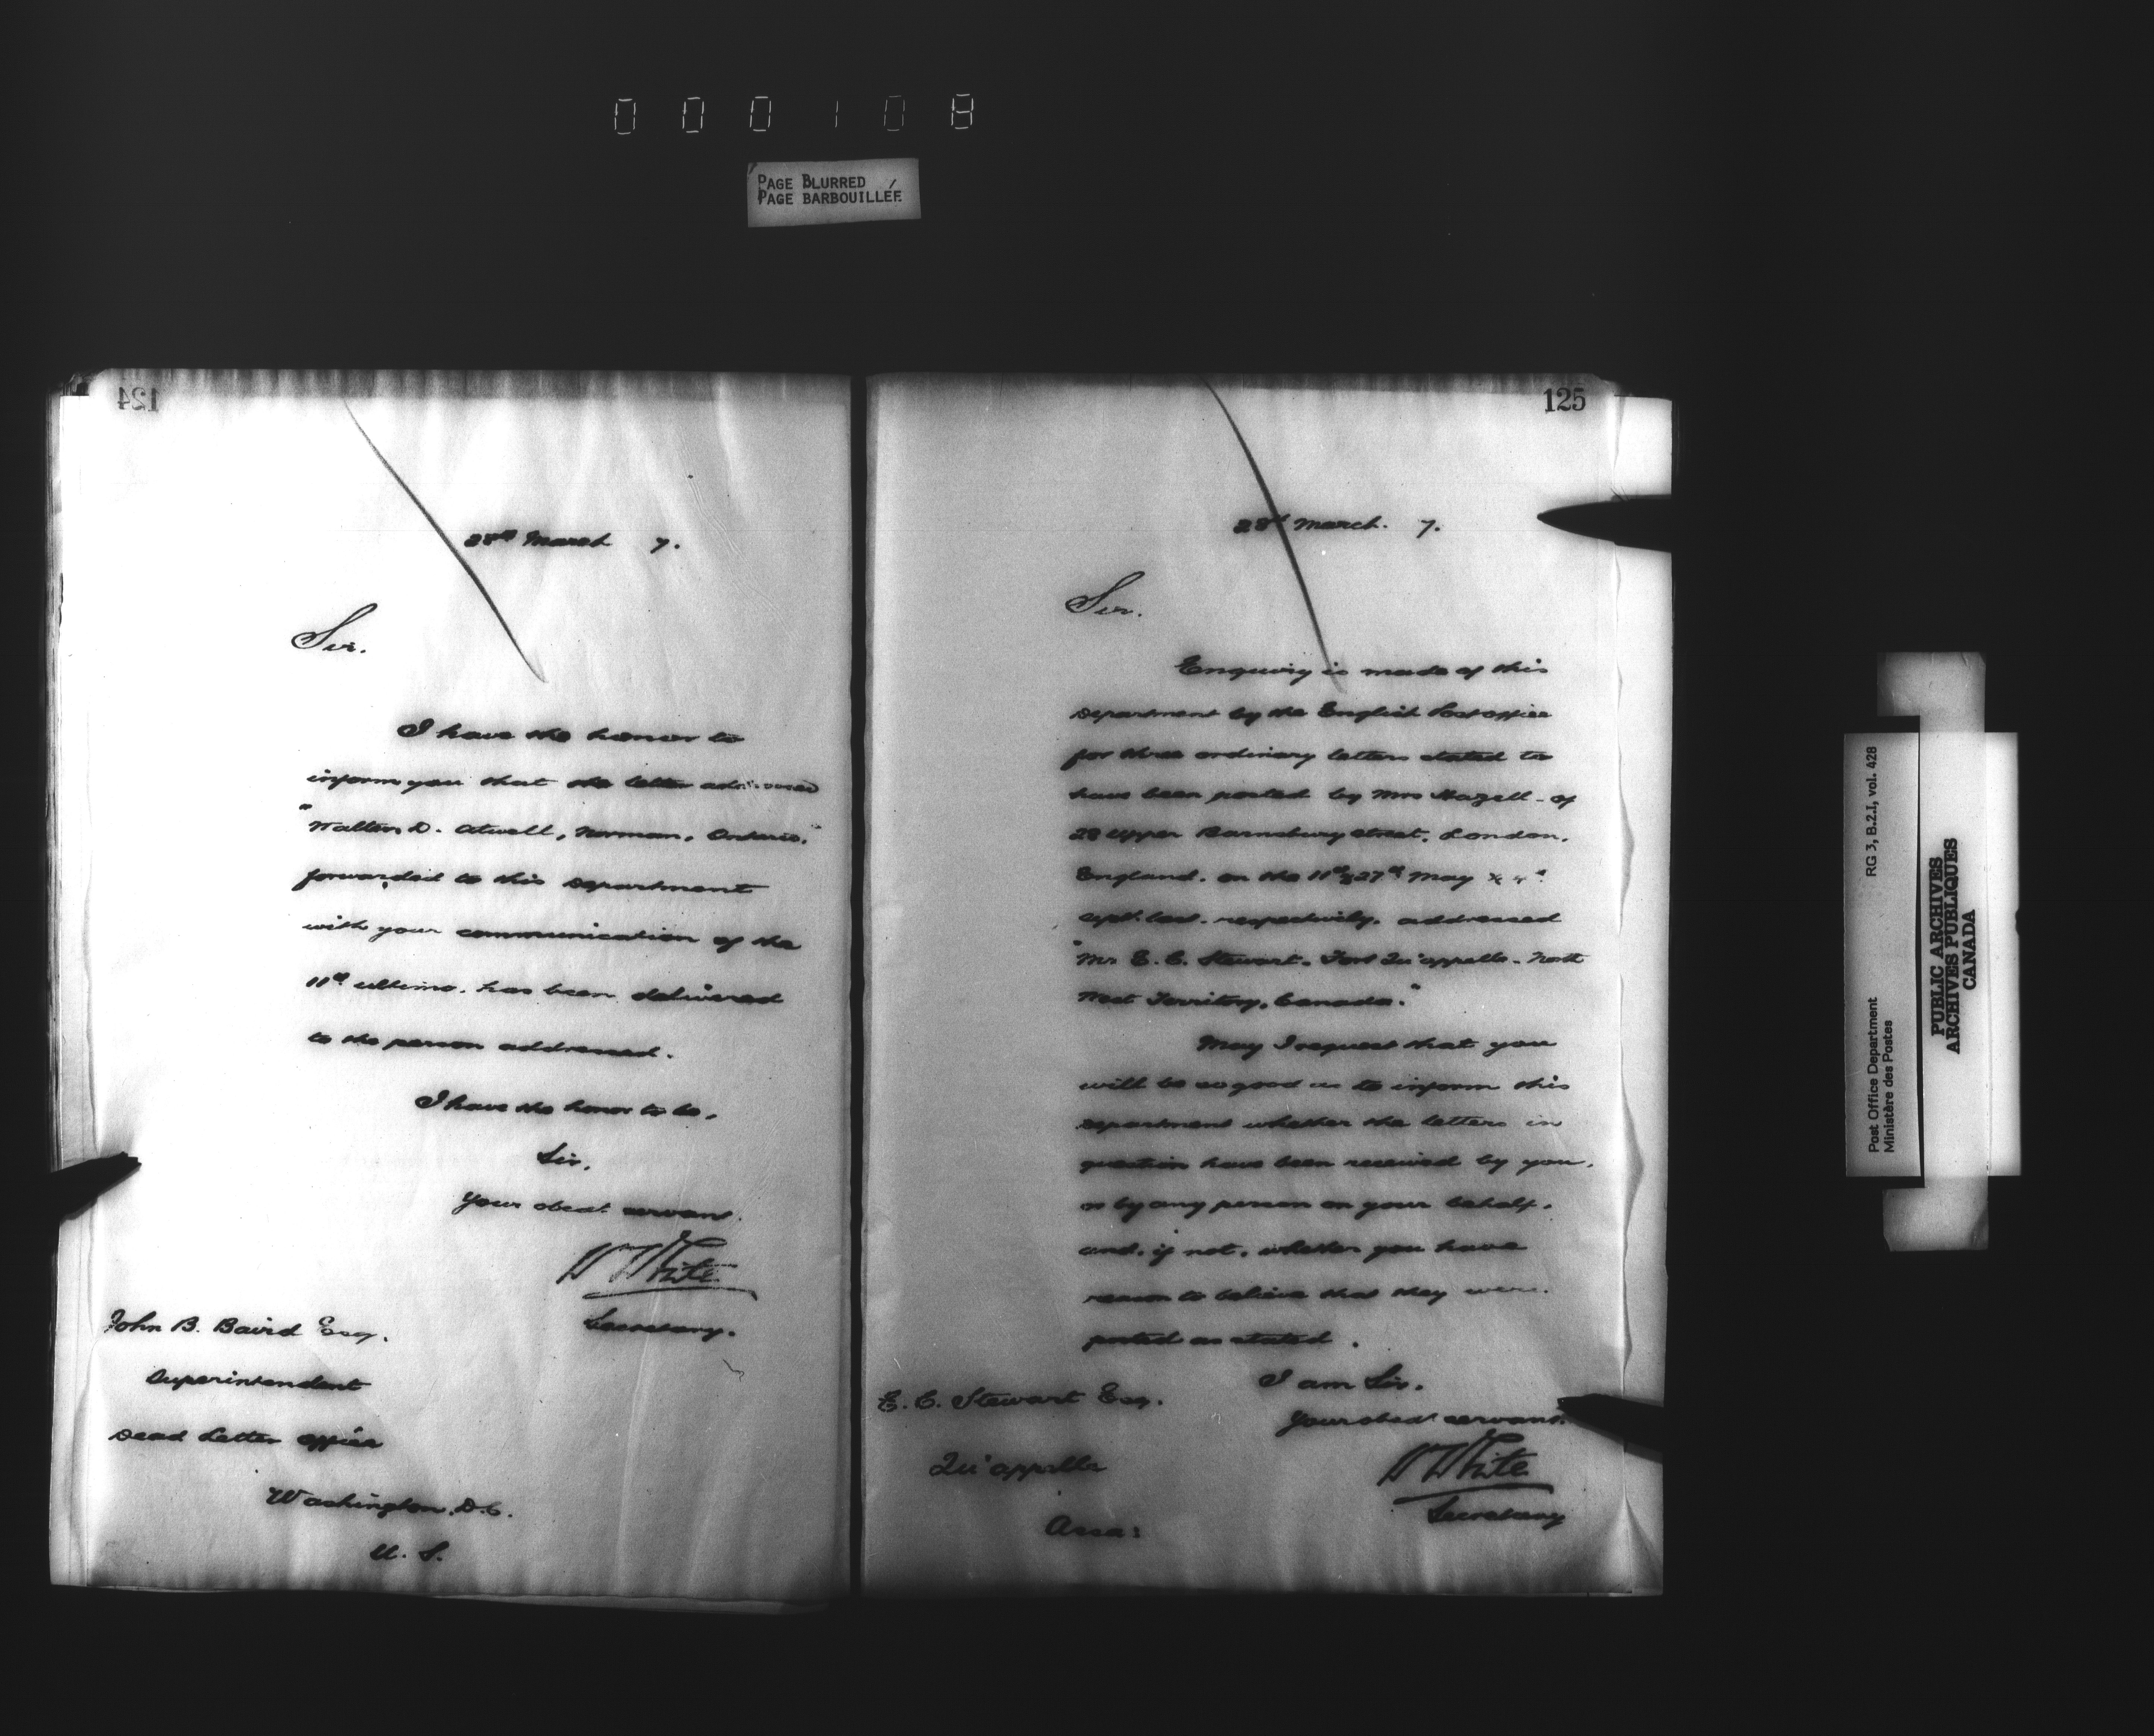 000108
PAGE BLURRED
PAGE BARBOUILLÉE
124
28th March 7.
Sir.
I have the honor to
inform you that the letter addressed
"Walter D. Atwell, Norman, Ontario,"
forwarded to this Department
with your communication of the
11th ultimo, has been delivered
to the person addressed.
I have the honor to be,
Sir,
Your obedt. servant.
W White
Secretary.
John B. Baird Esq.
Superintendent
Dead Letter Office
Washington, D.C.
U. S.
125
28th March. 7.
Sir.
Enquiry is made of this
Department by the English Post office
for three ordinary letters stated to
have been posted by Mrs Hazell - of
28 Upper Barnsbury Street, London,
England, on the 11th & 27th May &
Sept. last, respectively, addressed
"Mr E. C. Stewart, Fort Qu'appelle, North
West Territory, Canada."
May I request that you
will be so good as to inform this
Department whether the letters in
question have been received by you,
or by any person on your behalf,
and, if not, whether you have
reason to believe that they were
posted as stated.
I am Sir,
Your obedt servant.
W White
Secretary
E. C. Stewart Esq.
Qu'appelle
Assa:
RG 3, B.2.I, vol. 428
Post Office Department
Ministère des Postes
PUBLIC ARCHIVES
ARCHIVES PUBLIQUES
CANADA